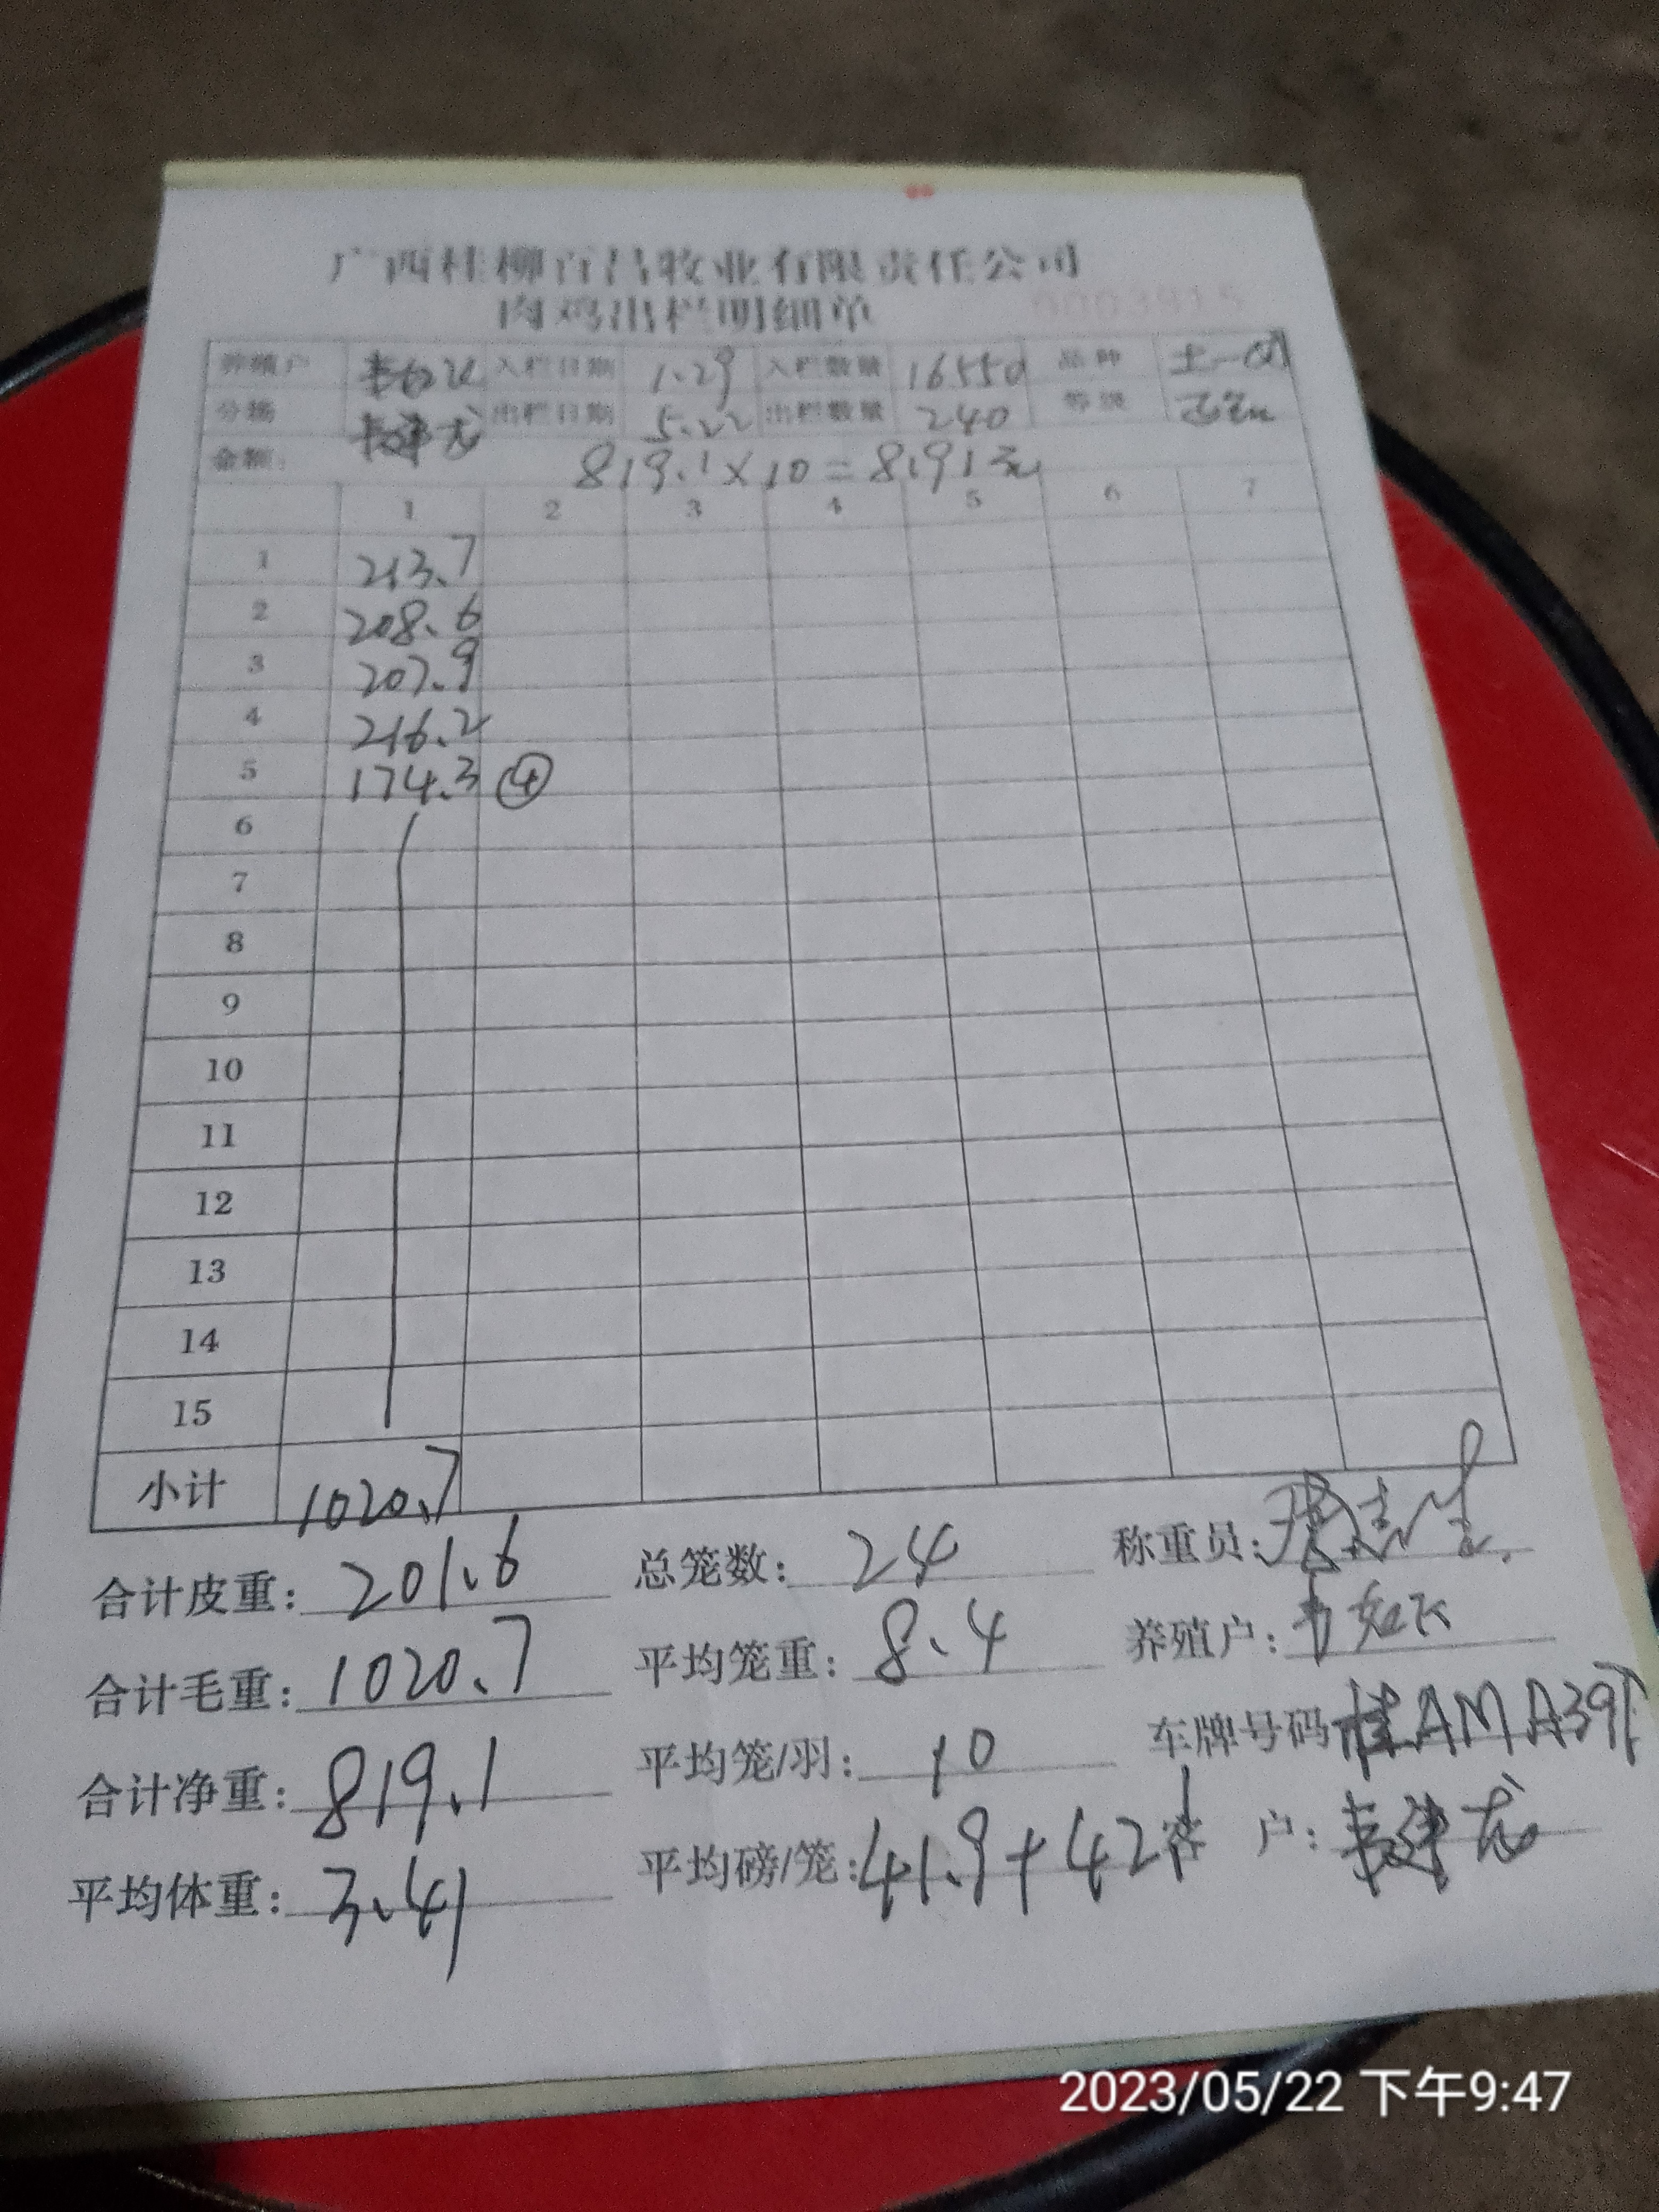 广西桂柳百昌牧业有限责任公司
肉鸡出栏明细单 0003915
养殖户 入栏日期 1.29 入栏数量 16550 品种 土一
分场 韦建龙 出栏日期 5.22 出栏数量 240 等级
金额: 819.1×10=8191元
1 2 3 4 5 6 7
1 213.7
2 208.6
3 207.9
4 216.2
5 174.3 ④
6
7
8
9
10
11
12
13
14
15
小计 1020.7
合计皮重: 201.6 总笼数: 24 称重员:
合计毛重: 1020.7 平均笼重: 8.4 养殖户:
合计净重: 819.1 平均笼/羽: 10 车牌号码 桂AMA391
平均体重: 3.41 平均磅/笼: 41.9+42 客 户: 韦建龙
2023/05/22 下午9:47